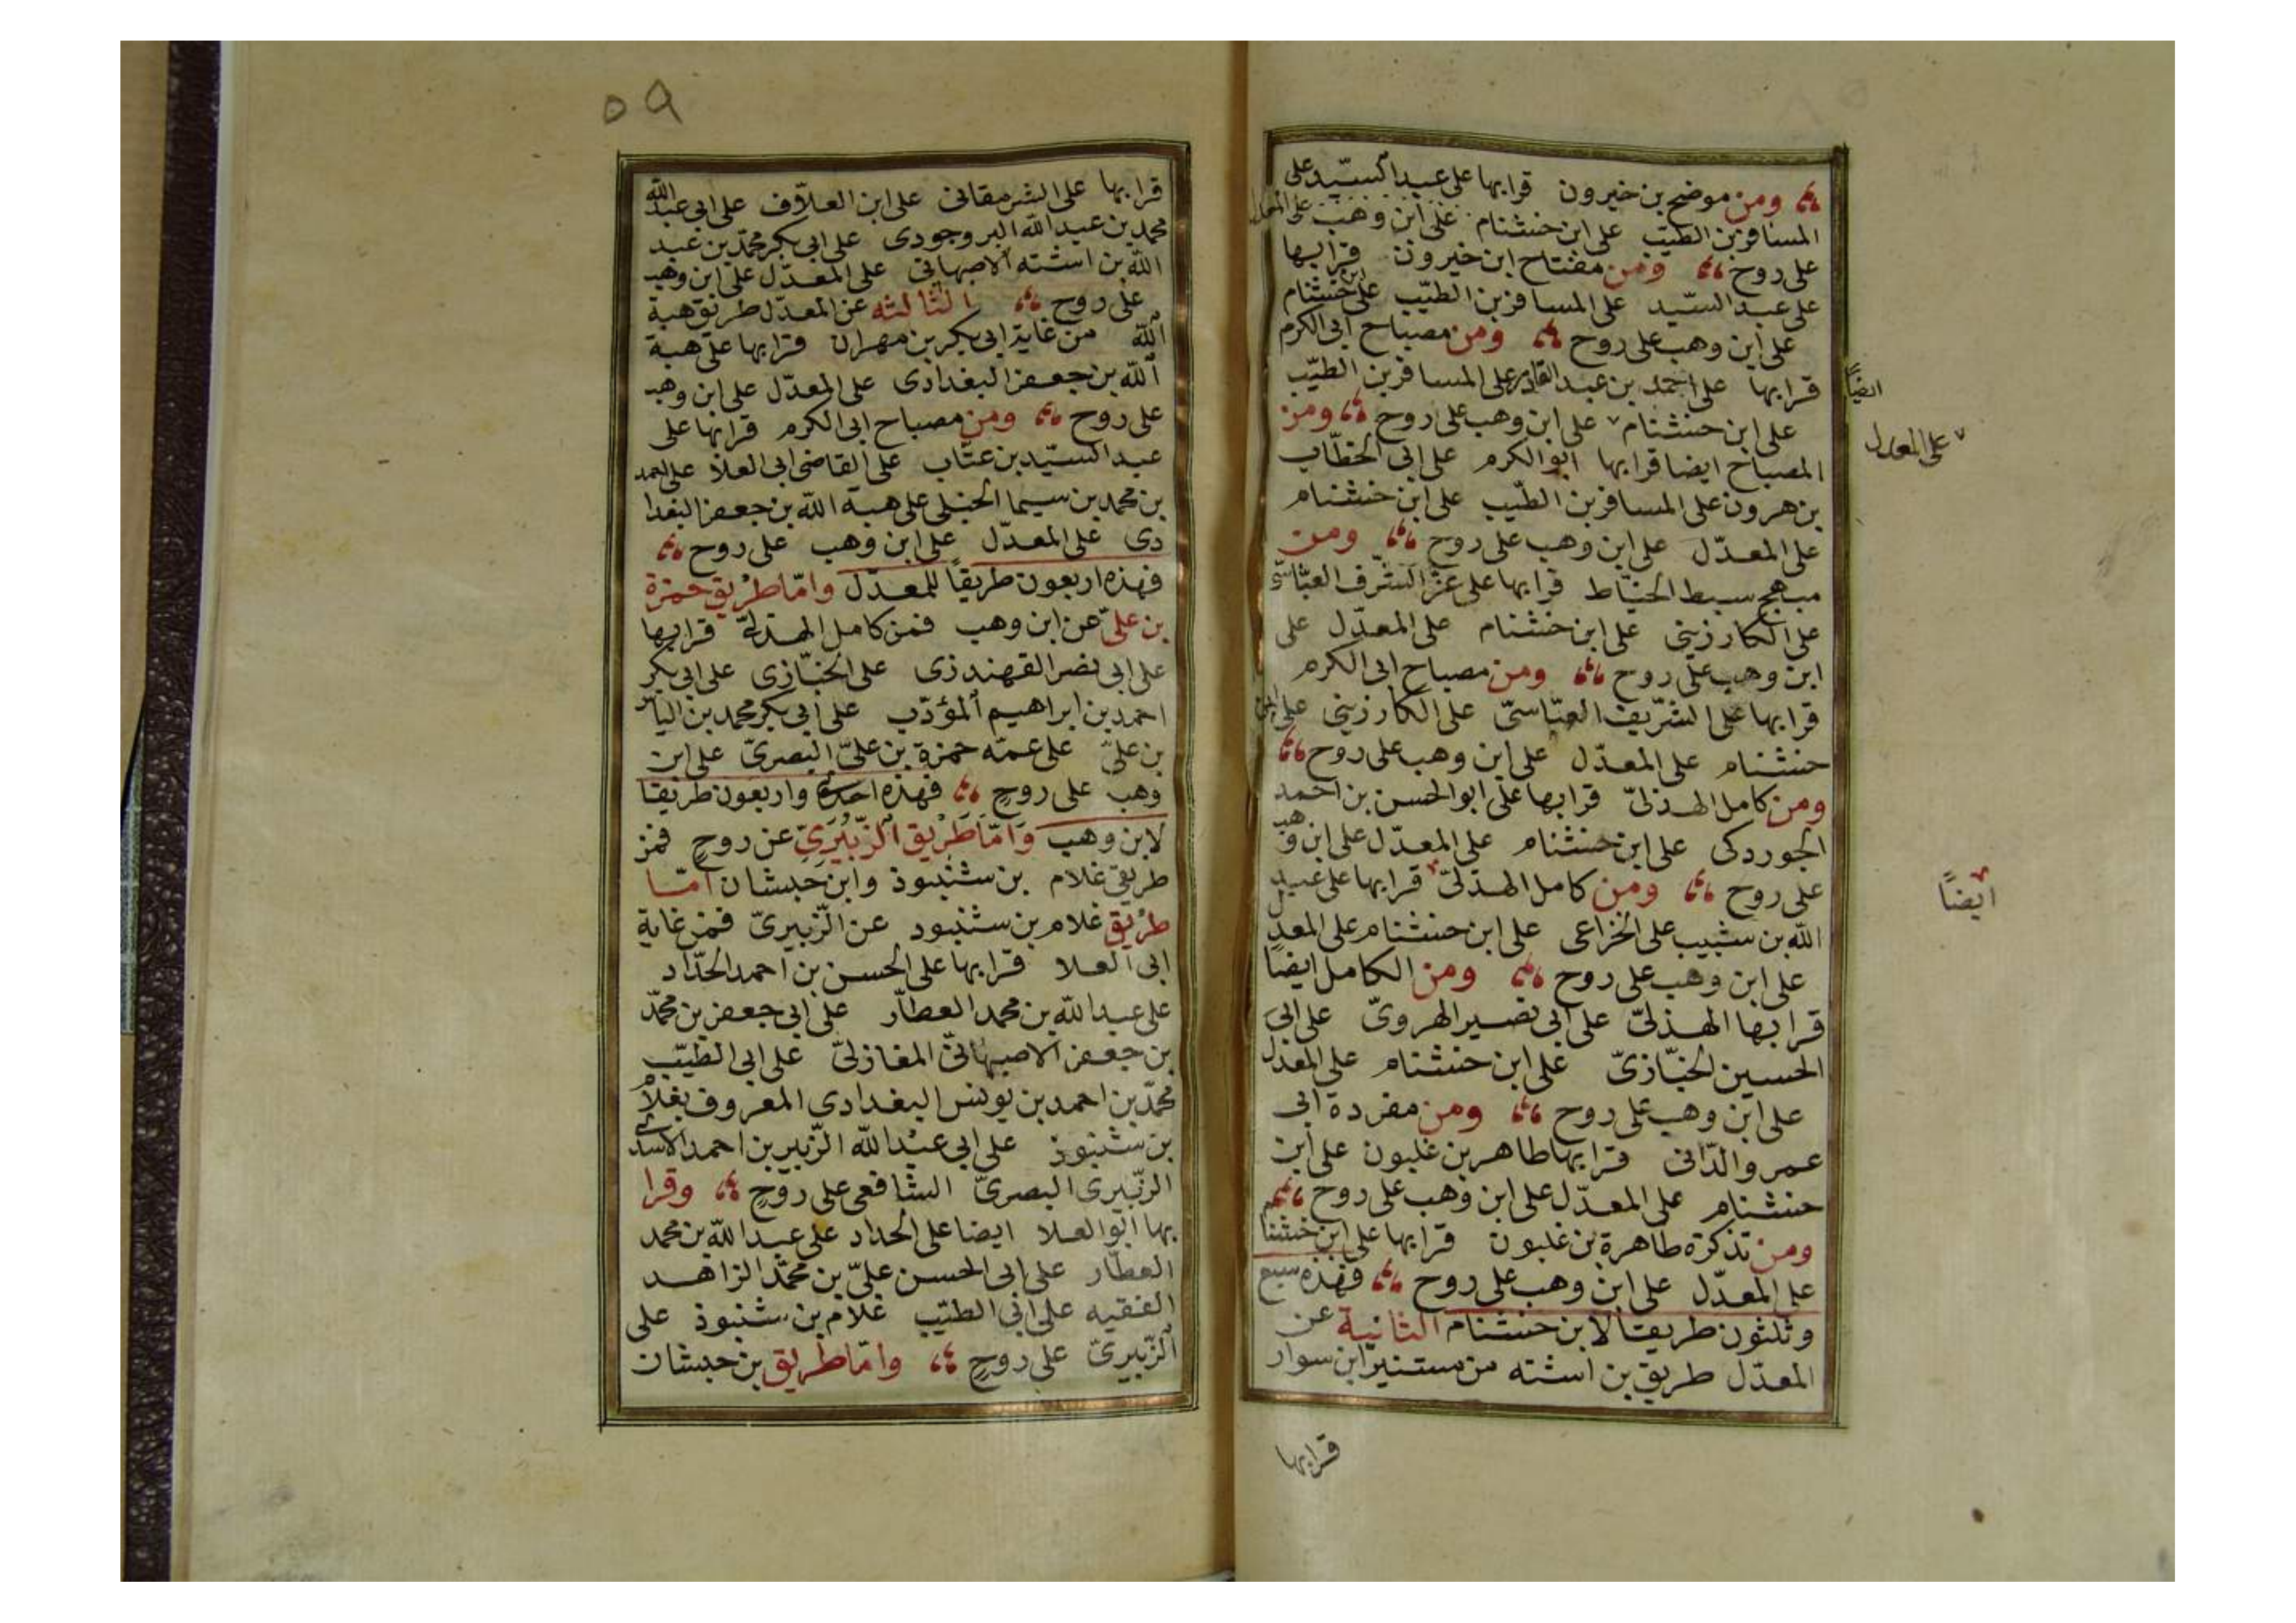 ومن موضح بن خيرون قرا بها على عبد السيّد على
المسافر بن الطيّب على ابن خشنام على ابن وهب على المعدل
على روح ومن مفتاح ابن خيرون قرا بها
على عبد السيّد على المسافر بن الطيّب على ابن خشنام
على ابن وهب على روح ومن مصباح ابى الكرم
قرا بها على احمد بن عبد القادر على المسافر بن الطيّب
ايضاً
على ابن خشنام على ابن وهب على روح ومن
على المعدل
المصباح ايضا قرا بها ابو الكرم على ابى الخطّاب
بن هرون على المسافر بن الطيّب على ابن خشنام
على المعدّل على ابن وهب على روح ومن
مبهج سبط الخيّاط قرا بها على عزّ الشرف العبّاسىّ
على الكارزينى على ابن خشنام على المعدّل على
ابن وهب على روح ومن مصباح ابى الكرم
قرا بها على الشّريف العبّاسىّ على الكارزينى على ابن
خشنام على المعدّل على ابن وهب على روح
ومن كامل الهذلىّ قرا بها على ابو الحسن بن احمد
الجوردكى على ابن خشنام على المعدّل على ابن وهب
على روح ومن كامل الهذلىّ قرا بها على عبيد
ايضاً
الله بن شبيب على الخزاعى على ابن خشنام على المعدل
على ابن وهب على روح ومن الكامل ايضا
قرا بها الهذلىّ على ابى نصير الهروىّ على ابى
الحسين الخبّازىّ على ابن خشنام على المعدل
على ابن وهب على روح ومن مفردة ابى
عمرو الدّانى قرا بها طاهر بن غلبون على ابن
خشنام على المعدّل على ابن وهب على روح
ومن تذكرة طاهرة بن غلبون قرا بها على ابن خشنام
على المعدّل على ابن وهب على روح فهذه سبع
وثلثون طريقا لابن خشنام الثانية عن
المعدّل طريق بن اشته من مستنير ابن سوار
قرا بها
٥٩
قرا بها على الشرمقانى على ابن العلاّف على ابى عبد الله
محمد بن عبد الله البروجودى على ابى بكر محمّد بن عبد
الله بن اشته الاصبهانى على المعدّل على ابن وهب
على روح الثالثه عن المعدّل طريق هبة
الله من غاية ابى بكر بن مهران قرا بها على هبة
الله بن جعفر البغدادى على المعدّل على ابن وهب
على روح ومن مصباح ابى الكرم قرا بها على
عبد السيّد بن عتّاب على القاضى ابى العلا على احمد
بن محمد بن سيما الحنبلى على هبة الله بن جعفر البغدا
دى على المعدّل على ابن وهب على روح
فهذه اربعون طريقاً للمعدّل وامّا طريق حمزة
بن علىّ عن ابن وهب فمن كامل الهذلىّ قرا بها
على ابى نصر القهندزى على الخبّازى على ابى بكر
احمد بن ابراهيم المؤدّب على ابى بكر محمد بن الياس
بن علىّ على عمّه حمزة بن علىّ البصرىّ على ابن
وهب على روح فهذه احدى واربعون طريقا
لابن وهب وَامّا طَريق الزّبُيرىّ عن روح فمن
طريقى غلام بن شنبوذ وابن حبشان امّا
طريق غلام بن شنبود عن الزّبيرىّ فمن غاية
ابى العلا قرا بها على الحسن بن احمد الحدّاد
على عبد الله بن محمد العطّار على ابى جعفر بن محمّد
بن جعفر الاصبهانىّ المغازلىّ على ابى الطيّب
محمّد بن احمد بن يونس البغدادى المعروف بغلام
بن شنبوذ على ابى عبد الله الزّبير بن احمد الاسدى
الزّبيرى البصرىّ الشافعى على روح وقرا
بها ابو العلا ايضا على الحداد على عبد الله بن محمد
العطّار على ابى الحسن علىّ بن محمّد الزاهد
الفقيه على ابى الطيّب غلام بن شنبوذ على
الزّبيرىّ على روح وامّا طريق بن حبشان